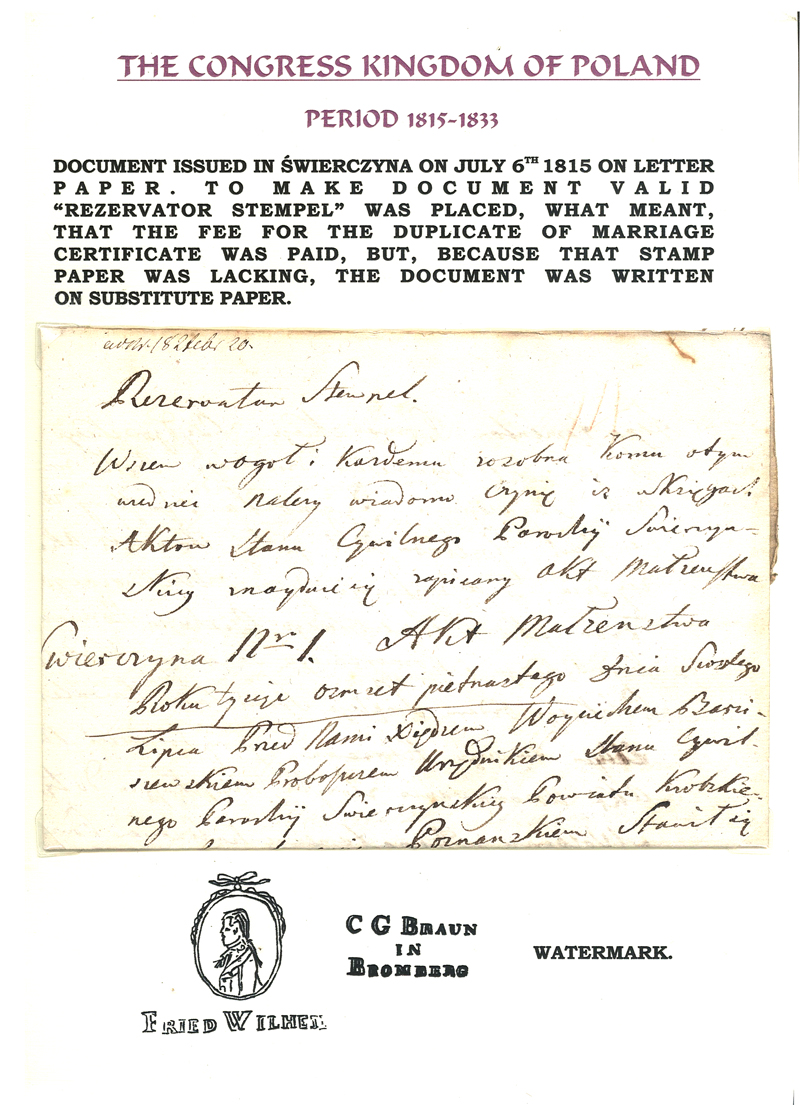 THE CONGRESS KINGDOM OF POLAND
PERIOD 1815-1833
DOCUMENT ISSUED IN ŚWIERCZYNA ON JULY 6TH 1815 ON LETTER
PAPER. TO MAKE DOCUMENT VALID
“REZERVATOR STEMPEL” WAS PLACED, WHAT MEANT,
THAT THE FEE FOR THE DUPLICATE OF MARRIAGE
CERTIFICATE WAS PAID, BUT, BECAUSE THAT STAMP
PAPER WAS LACKING, THE DOCUMENT WAS WRITTEN
ON SUBSTITUTE PAPER.
Rezervatur Stempel.
Wszem wogoł i Kazdemu zosobna Komu otym
wiedziec nalezy wiadomo czynię iz wKsięgach
Aktow Stanu Cywilnego Parochÿ Swierczyn-
skiey znayduie się zapisany Akt Małzenstwa
Swierczyna Nro 1. Akt Małzenstwa
Roku tysiąc osmset pietnastego Dnia Szostego
Lipca Przed Nami Xiędzem Woyciechem
Proboszczem Urzędnikiem Stanu Cywil-
nego Parochÿ Swierczynskiey Powiatu Krobskie-
Poznanskiem Stawił się
C G BRAUN
IN
BROMBERG
WATERMARK.
FRIED WILHEL